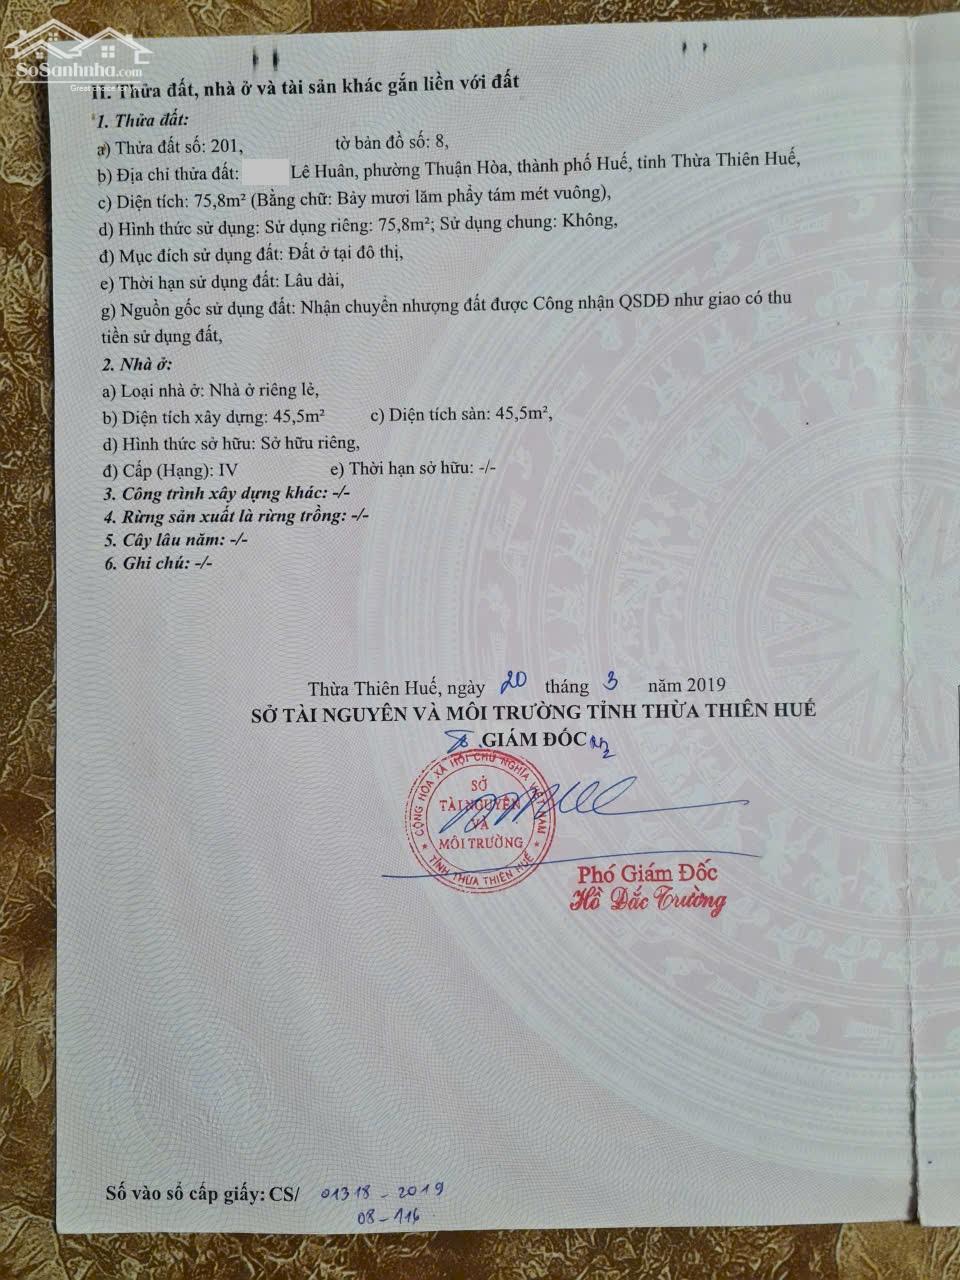 SoSanhnha.com
Great choice for you
II. Thửa đất, nhà ở và tài sản khác gắn liền với đất
1. Thửa đất:
a) Thửa đất số: 201, tờ bản đồ số: 8,
b) Địa chỉ thửa đất: Lê Huân, phường Thuận Hòa, thành phố Huế, tỉnh Thừa Thiên Huế,
c) Diện tích: 75,8m² (Bằng chữ: Bảy mươi lăm phẩy tám mét vuông),
d) Hình thức sử dụng: Sử dụng riêng: 75,8m²; Sử dụng chung: Không,
đ) Mục đích sử dụng đất: Đất ở tại đô thị,
e) Thời hạn sử dụng đất: Lâu dài,
g) Nguồn gốc sử dụng đất: Nhận chuyển nhượng đất được Công nhận QSDĐ như giao có thu
tiền sử dụng đất,
2. Nhà ở:
a) Loại nhà ở: Nhà ở riêng lẻ,
b) Diện tích xây dựng: 45,5m² c) Diện tích sàn: 45,5m²,
d) Hình thức sở hữu: Sở hữu riêng,
đ) Cấp (Hạng): IV e) Thời hạn sở hữu: -/-
3. Công trình xây dựng khác: -/-
4. Rừng sản xuất là rừng trồng: -/-
5. Cây lâu năm: -/-
6. Ghi chú: -/-
Thừa Thiên Huế, ngày 20 tháng 3 năm 2019
SỞ TÀI NGUYÊN VÀ MÔI TRƯỜNG TỈNH THỪA THIÊN HUẾ
GIÁM ĐỐC
CỘNG HÒA XÃ HỘI CHỦ NGHĨA VIỆT NAM
SỞ
TÀI NGUYÊN
VÀ
MÔI TRƯỜNG
TỈNH THỪA THIÊN HUẾ
Phó Giám Đốc
Hồ Đắc Trường
Số vào sổ cấp giấy: CS/ 01318-2019
08-116